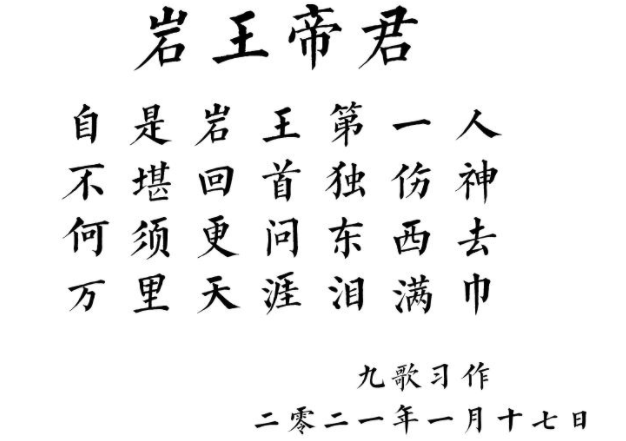 岩王帝君
自是岩王第一人
不堪回首独伤神
何须更问东西去
万里天涯泪满巾
九歌习作
二零二一年一月十七日